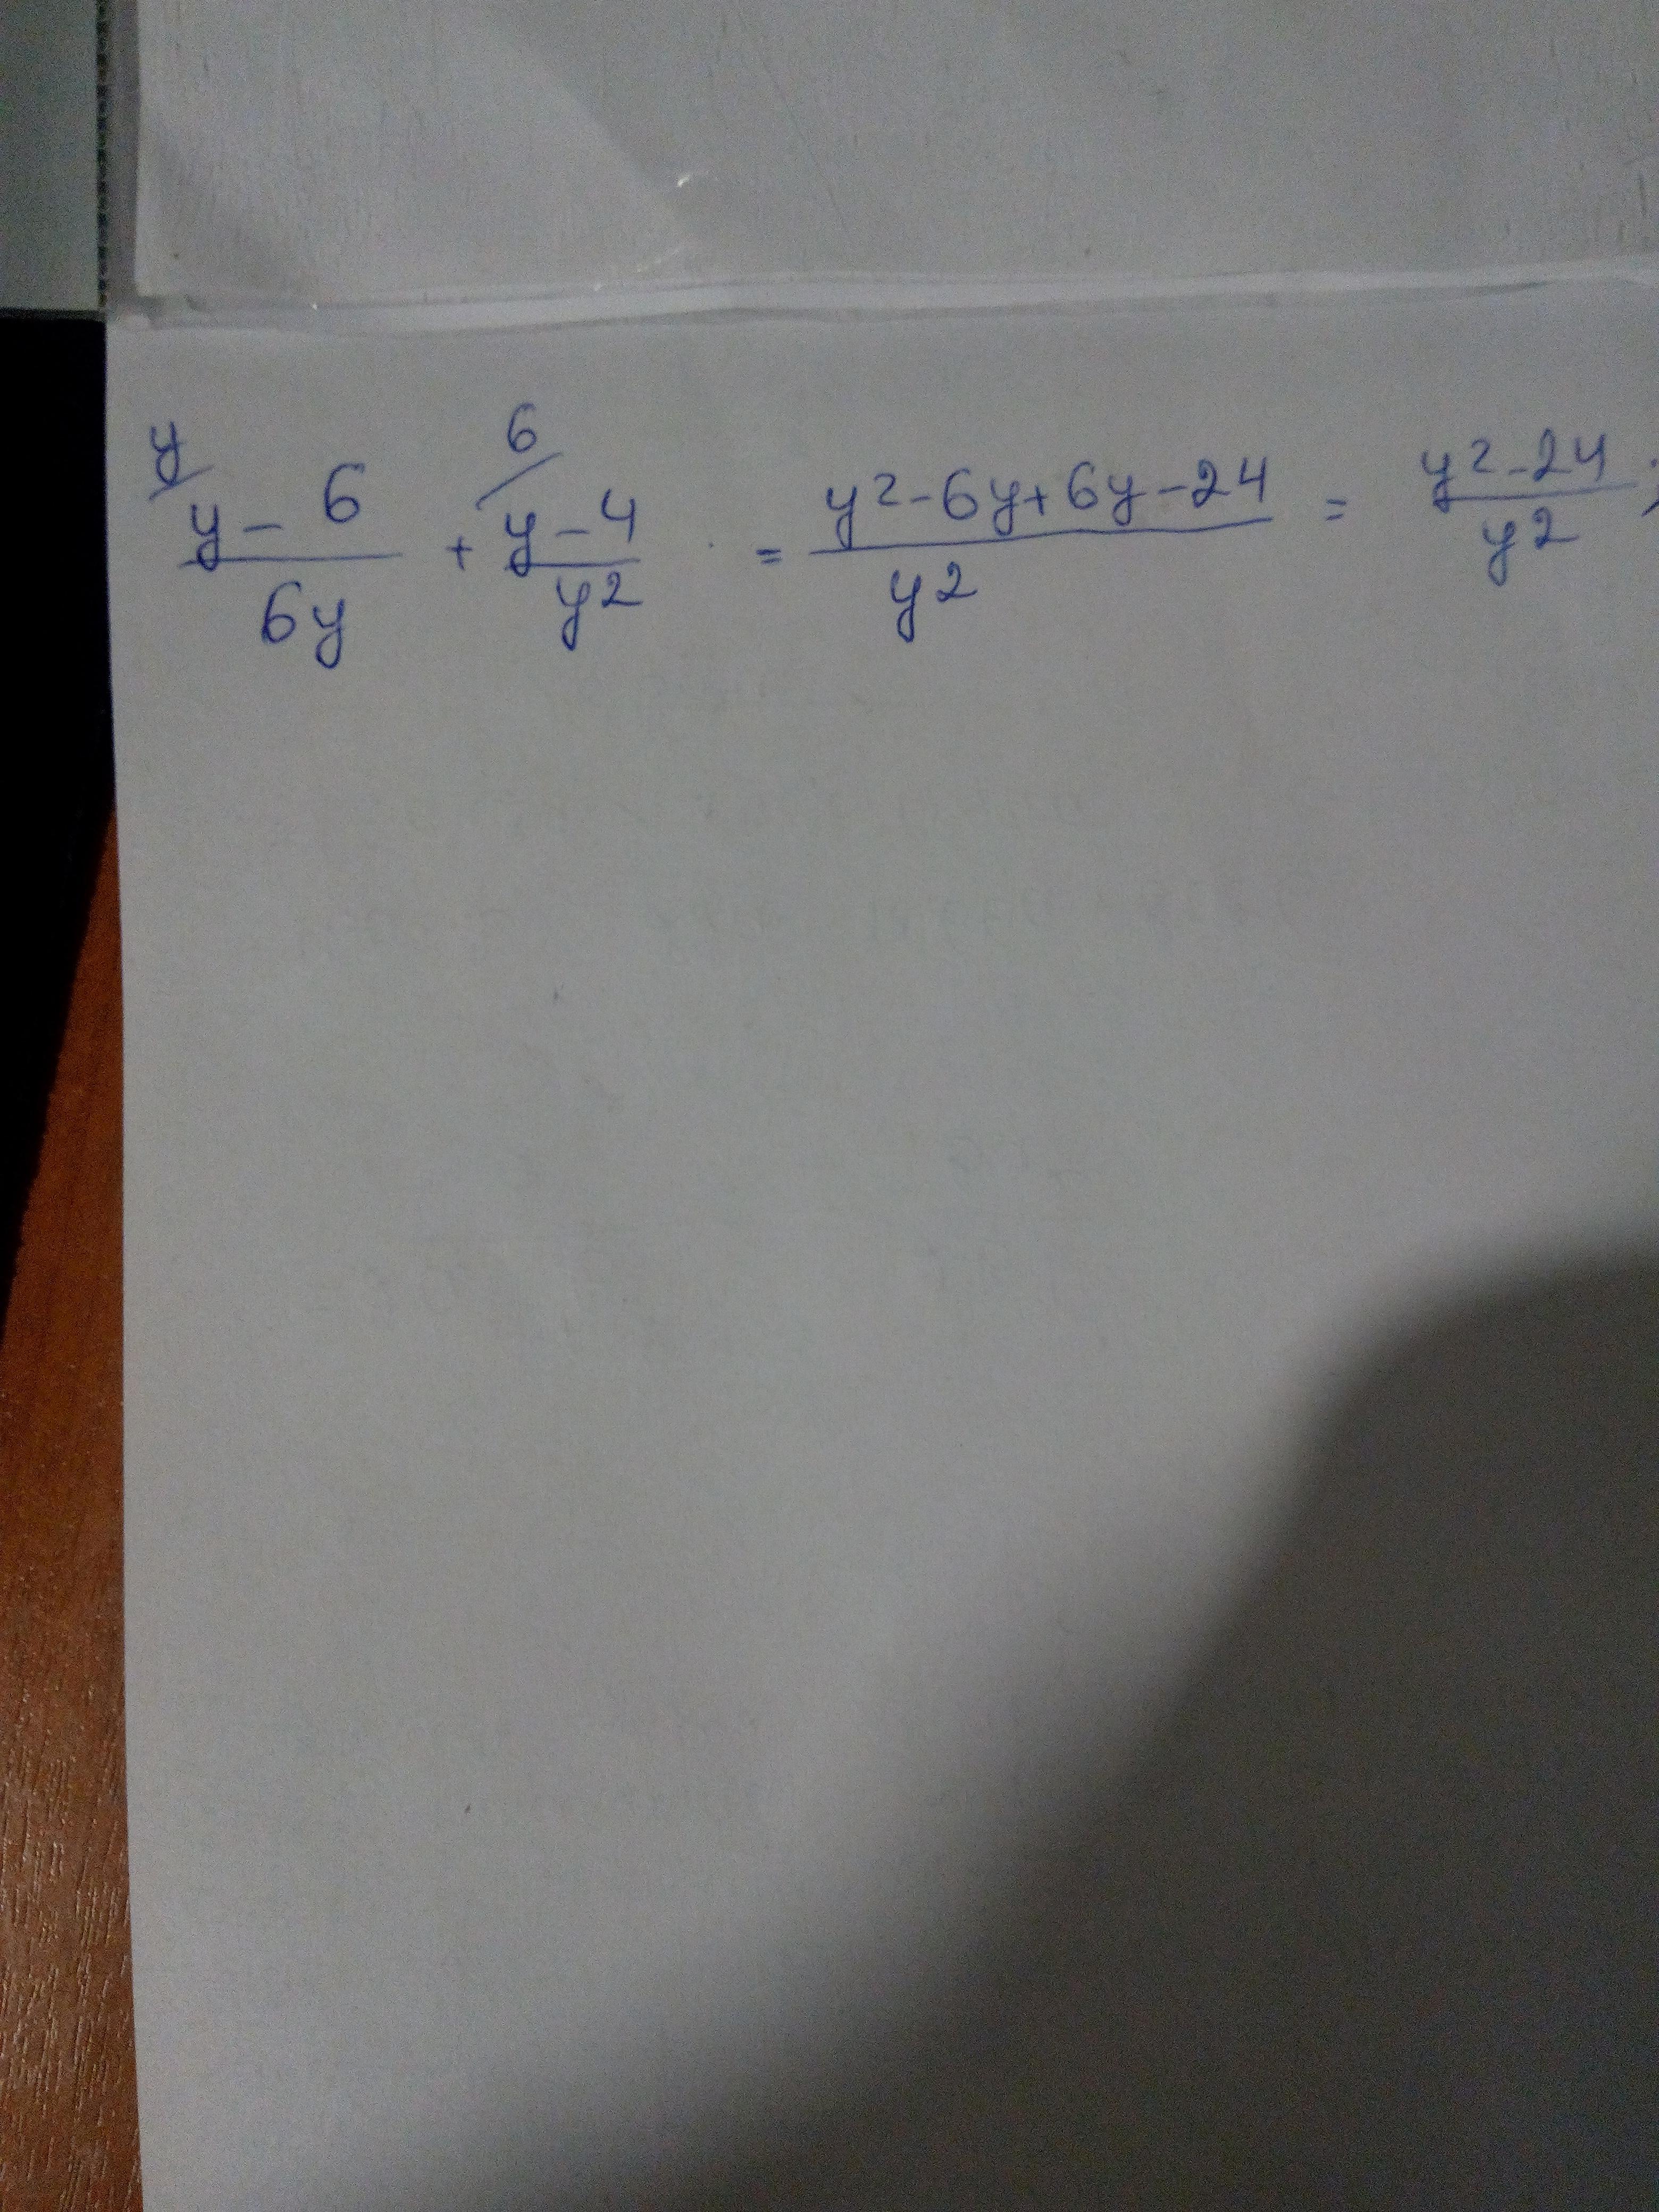 y/ (y - 6)/6y + 6/ (y - 4)/y² = (y² - 6y + 6y - 24)/y² = (y² - 24)/y² ;